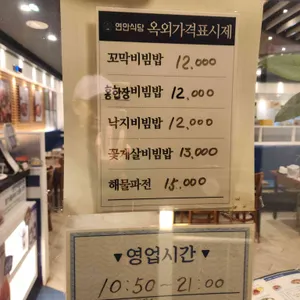 연안식당 옥외가격표시제
꼬막비빔밥 12,000
홍합장비빔밥 12,000
낙지비빔밥 12,000
꽃게살비빔밥 13,000
해물파전 15,000
▼영업시간▼
10:50~21:00